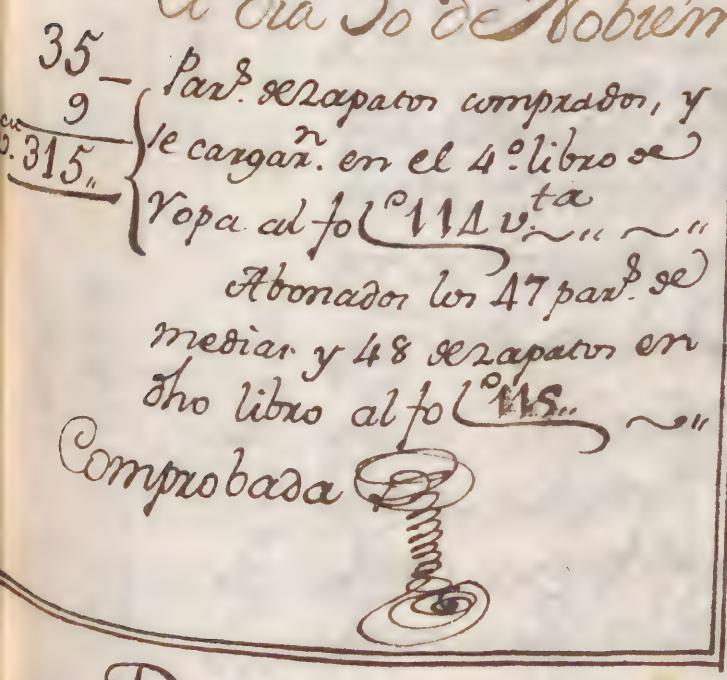 el dia 30 de Nobiem
35
9
315,,
Par.s de zapatos comprados, y
se cargar.n en el 4.º libro de
ropa al fol.º 114 v.ta ~,, ~,,
Abonados los 47 par.s de
medias y 48 de zapatos en
dho libro al fol.º 115.. ~,,
Comprobada